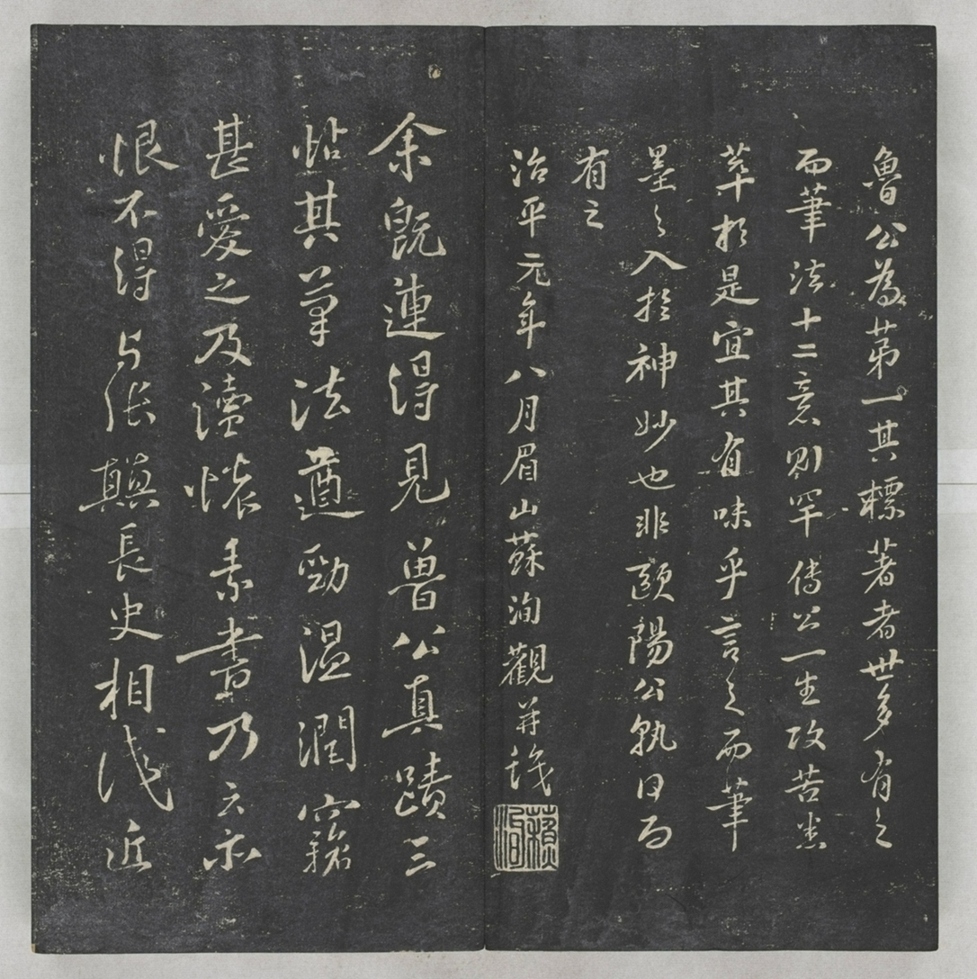 魯公為第一其標著者世多有之
而筆法十二意則罕傳公一生攻苦悉
萃於是宜其有味乎言之而筆
墨之入於神妙也非歐陽公孰因而
有之
治平元年八月眉山蘇洵觀并識
蘇洵
余既連得見魯公真蹟三
帖其筆法遒勁溫潤竊
甚愛之及讀懷素書乃云亦
恨不得與張顛長史相識近